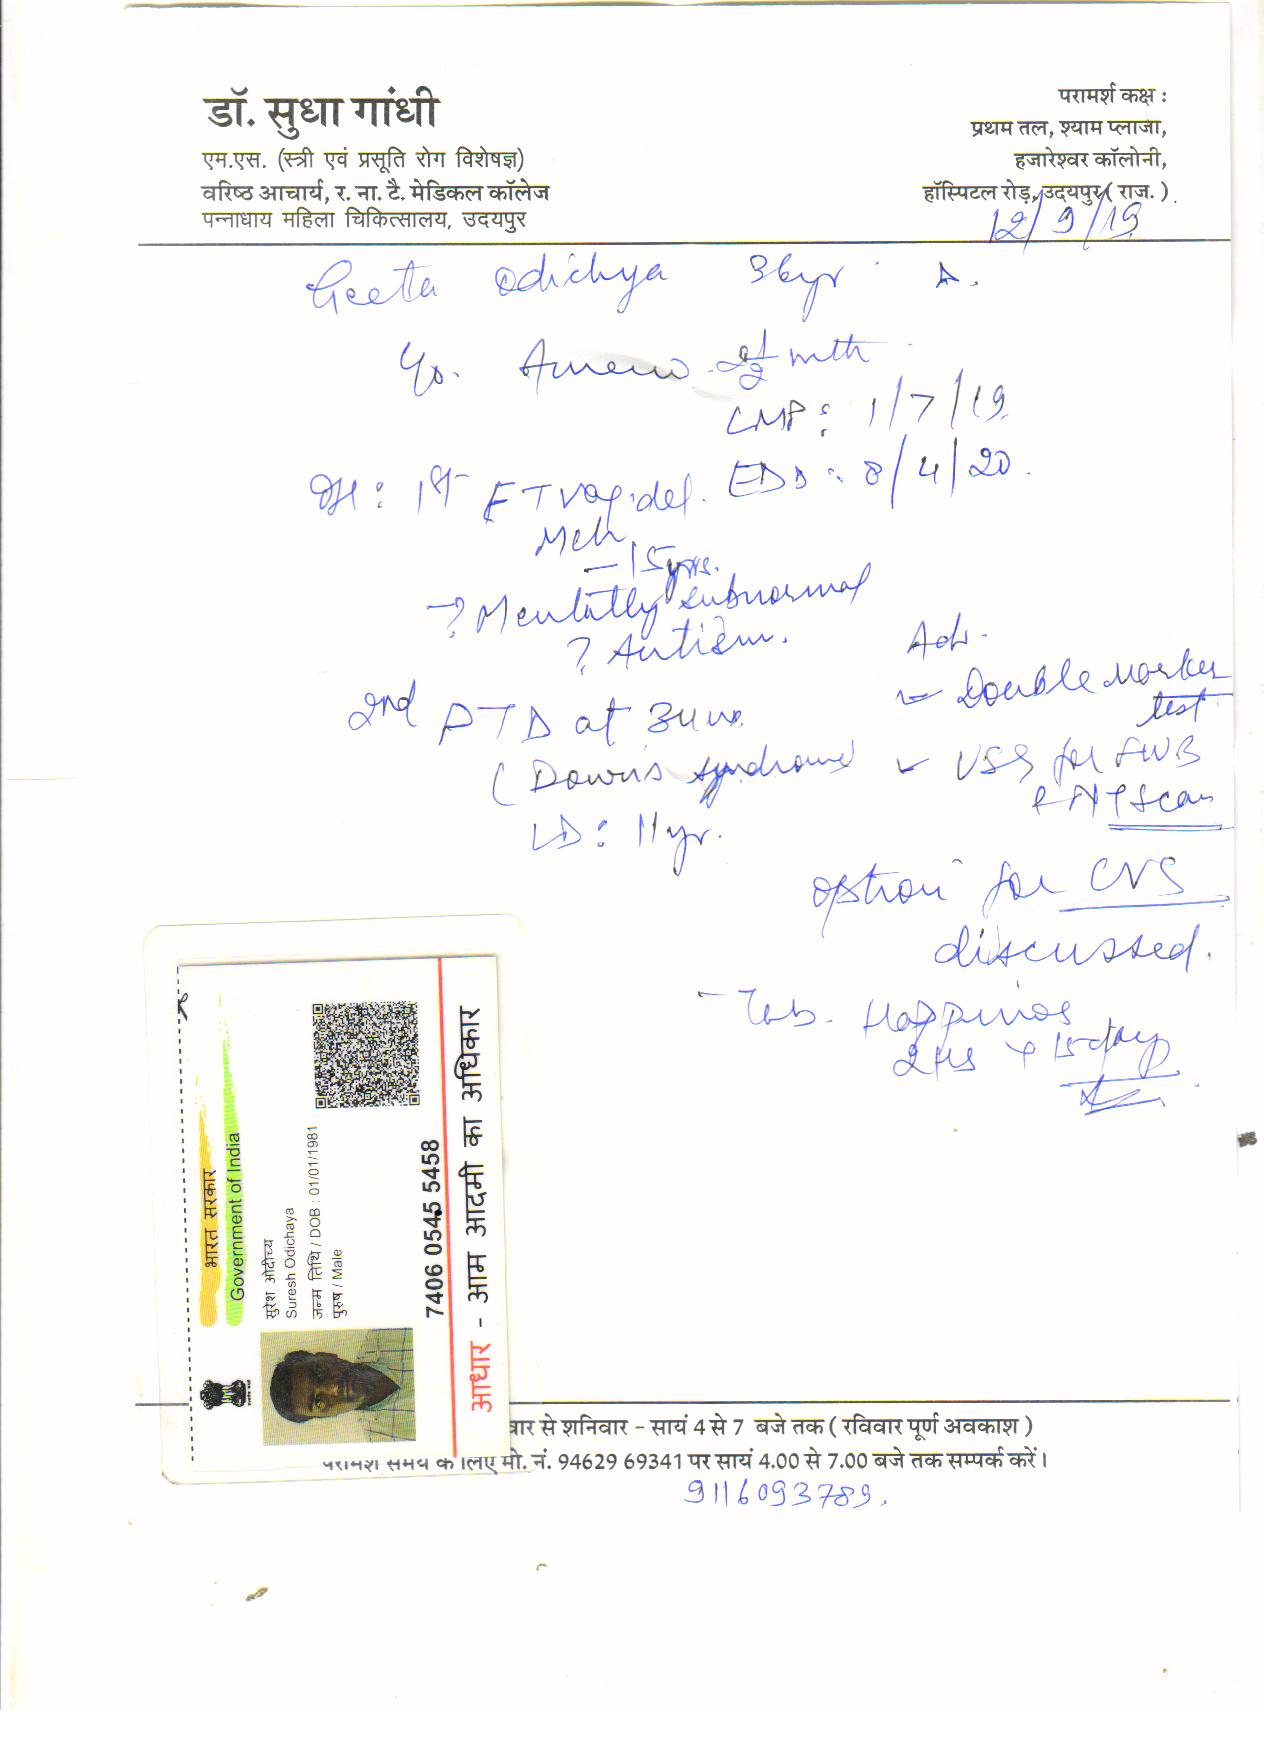 डॉ. सुधा गांधी
एम.एस. (स्त्री एवं प्रसूति रोग विशेषज्ञ)
वरिष्ठ आचार्य, र. ना. टै. मेडिकल कॉलेज
पन्नाधाय महिला चिकित्सालय, उदयपुर
परामर्श कक्ष :
प्रथम तल, श्याम प्लाजा,
हजारेश्वर कॉलोनी,
हॉस्पिटल रोड़, उदयपुर ( राज. )
12/9/19
Geeta Odichya 36yr
2 1/2 mth
LMP: 1/7/19
EDD: 8/4/20
OH: 1st FT vag. del.
Mch
— 15yrs.
→? Mentally subnormal
? Autism.
2nd PTD at
(Down's syndrome
LD: 11yr.
Adv.
Double Marker
test
USG for FWB
& NT Scan
option for CVS
discussed.
- Tab.
भारत सरकार
Government of India
सुरेश ओदीच्य
Suresh Odichaya
जन्म तिथि / DOB : 01/01/1981
पुरुष / Male
7406 0545 5458
आधार - आम आदमी का अधिकार
वार से शनिवार - सायं 4 से 7 बजे तक ( रविवार पूर्ण अवकाश )
परामर्श समय के लिए मो. नं. 94629 69341 पर सायं 4.00 से 7.00 बजे तक सम्पर्क करें।
9116093789.